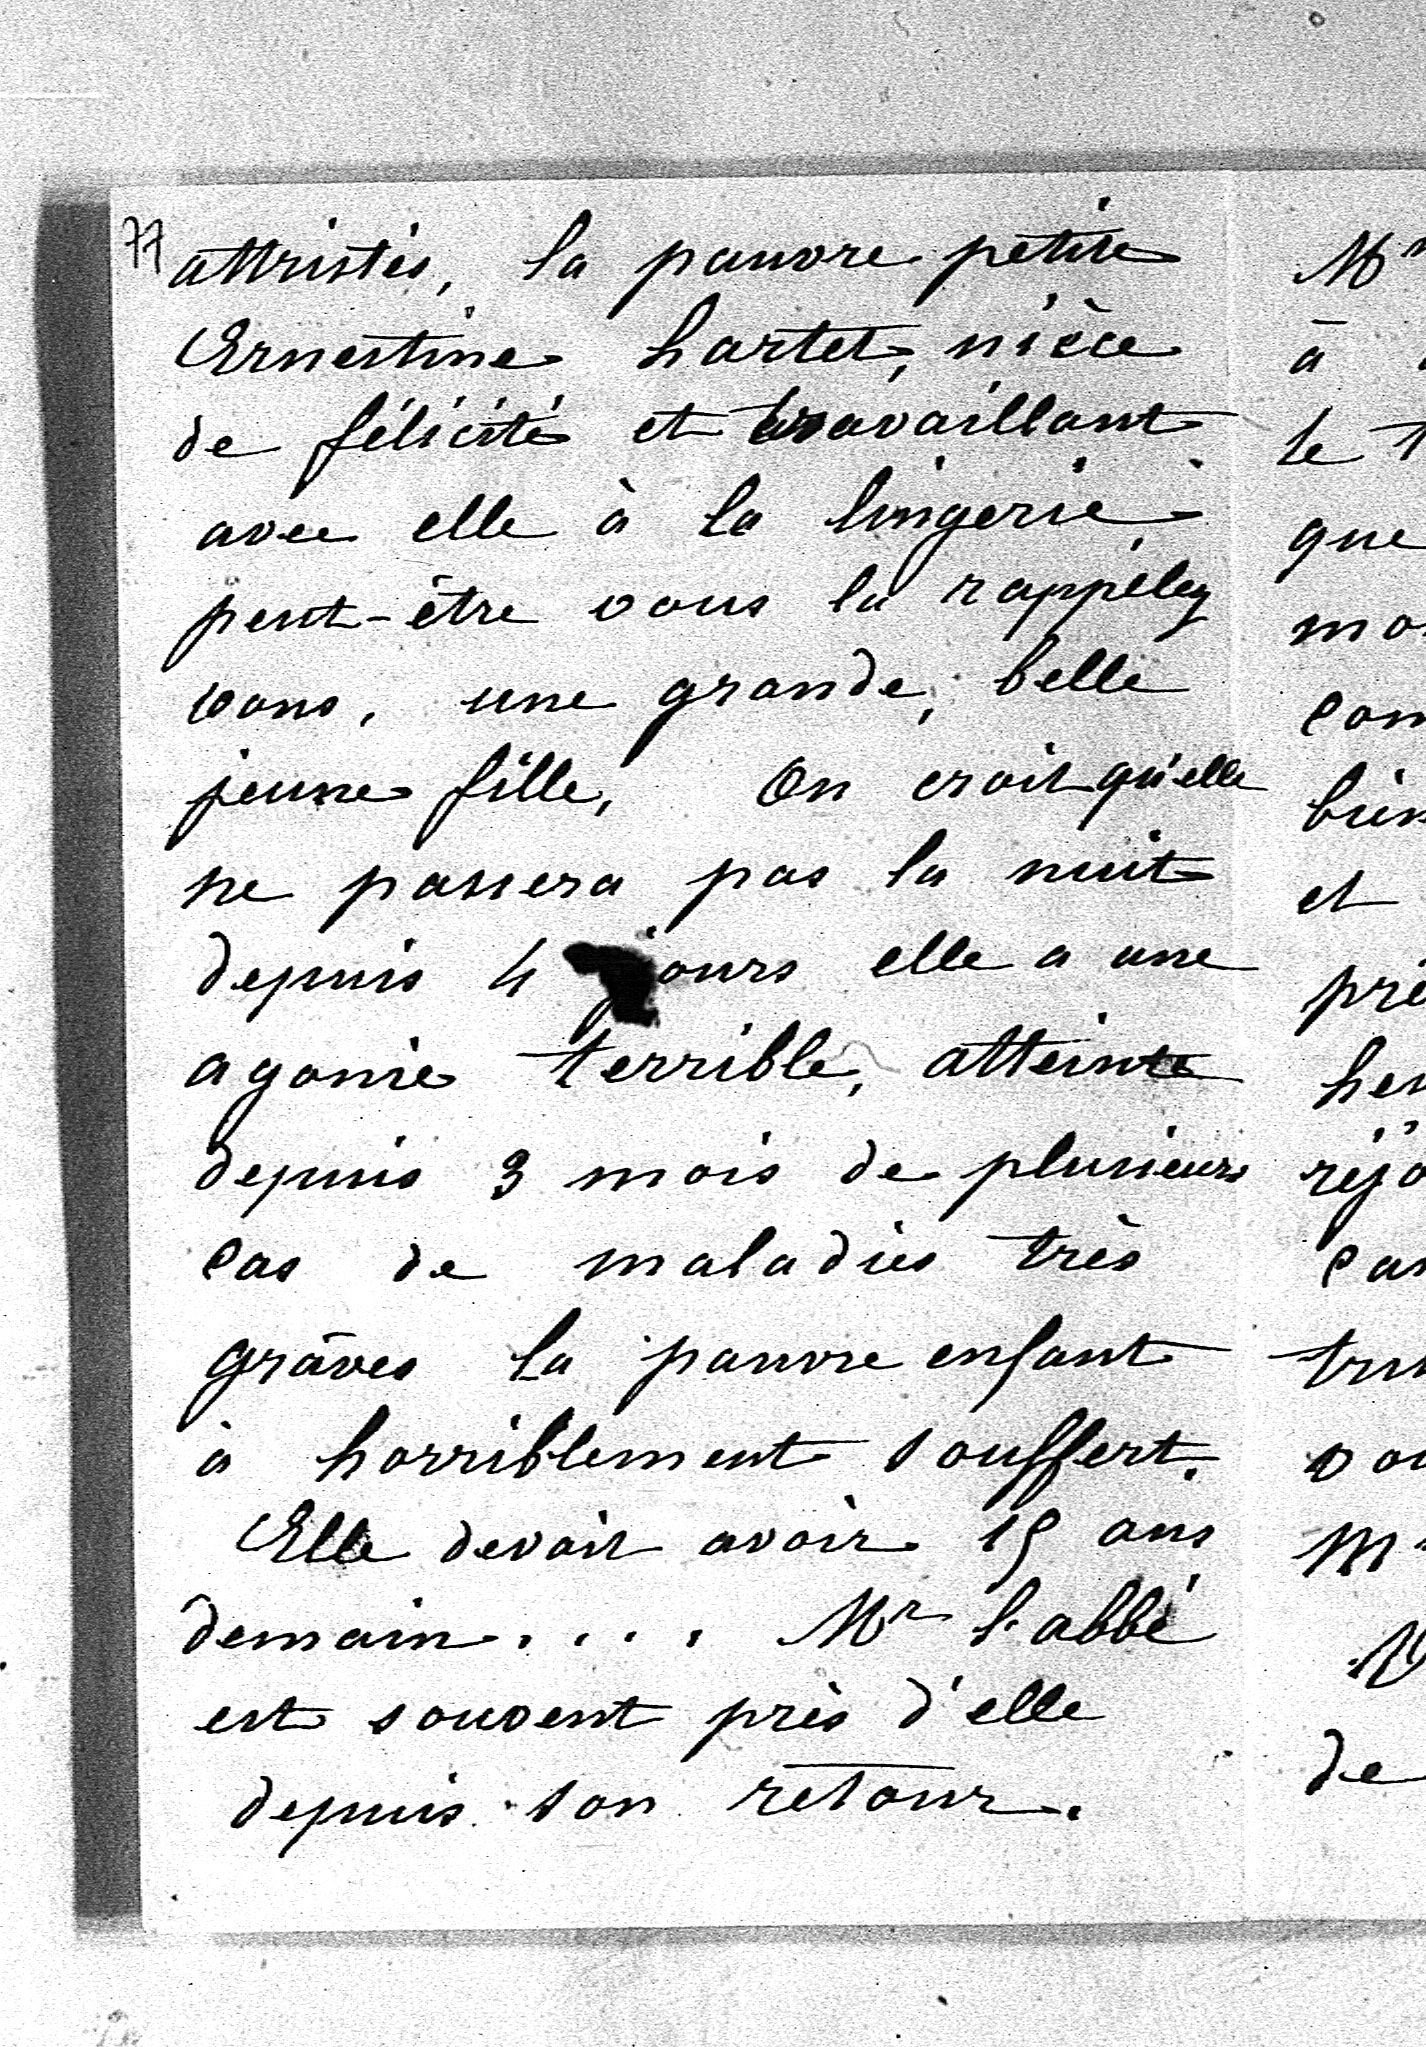 77
attristés, la pauvre petite
Ernestine hartet, nièce
de félicité et travaillant
avec elle à la lingerie.
peut-être vous la rappélez
vous, une grande, belle
jeune fille, On croit qu'elle
ne passera pas la nuit
depuis 4 jours elle a une
agonie terrible, atteinte
depuis 3 mois de plusieurs
cas de maladies très
grâves la pauvre enfant
à horriblement souffert.
Elle devait avoir 15 ans
demain.... Mr l'abbé
est souvent près d'elle
depuis son retour.
à
le
que
et
de